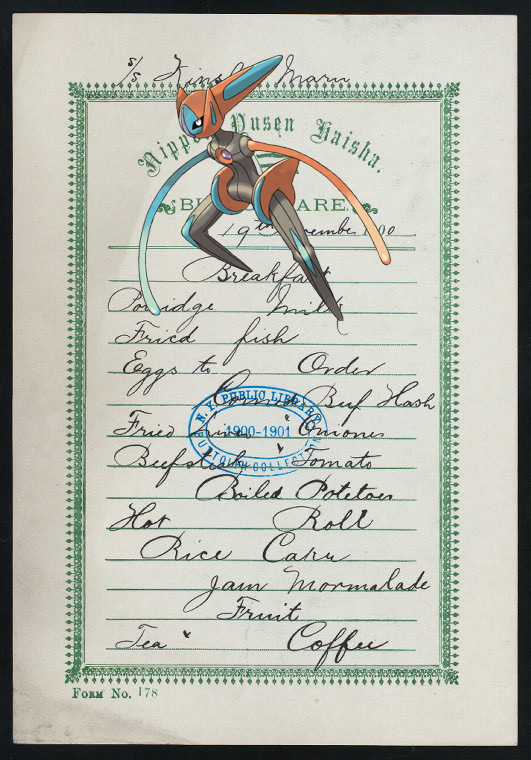 S/S Kinshu Maru
Nippon Yusen Kaisha.
BILL FARE.
19th November 1900
Breakfast
Porridge Milk
Fried fish
Eggs to Order
Corned Beef Hash
Fried " Oniones
Beefsteak " Tomato
Boiled Potetoes
Hot Roll
Rice Cake
Jam Mormalade
Fruit
Tea " Coffee
N.Y. PUBLIC LIBRARY
1900-1901
BUTTOLPH COLLECTION
FORM No. 178